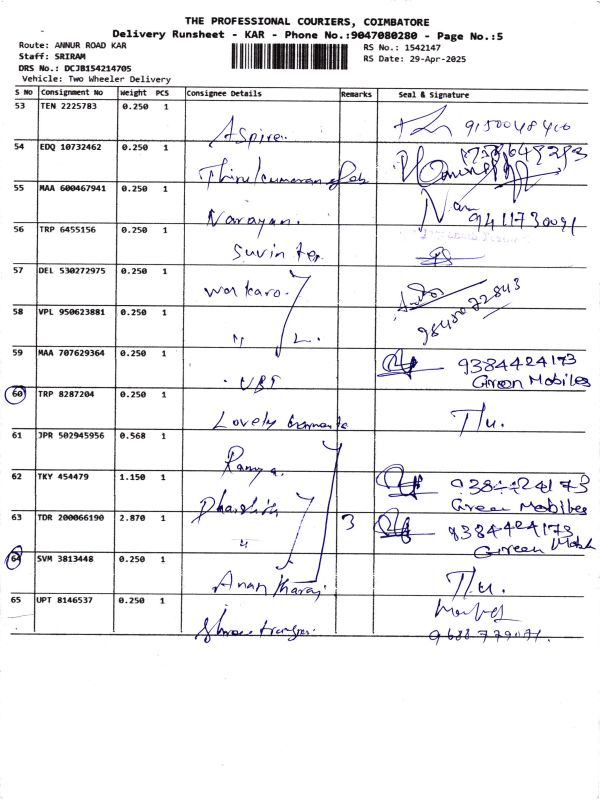 THE PROFESSIONAL COURIERS, COIMBATORE
Delivery Runsheet - KAR - Phone No.:9047080280 - Page No.:5
Route: ANNUR ROAD KAR
RS No.: 1542147
Staff: SRIRAM
RS Date: 29-Apr-2025
DRS No.: DCJB154214705
Vehicle: Two Wheeler Delivery
S NO Consignment No Weight PCS Consignee Details Remarks Seal & Signature
53 TEN 2225783 0.250 1 Aspire
54 EDQ 10732462 0.250 1
55 MAA 600467941 0.250 1 Narayan.
56 TRP 6455156 0.250 1
57 DEL 530272975 0.250 1
58 VPL 950623881 0.250 1 " 
59 MAA 707629364 0.250 1 9384424173
Green Mobiles
60 TRP 8287204 0.250 1 Lovely
61 JPR 502945956 0.568 1 Ramya.
62 TKY 454479 1.150 1 9384424173
Green Mobiles
63 TDR 200066190 2.870 1 " 3 9384424173
Green
64 SVM 3813448 0.250 1
65 UPT 8146537 0.250 1